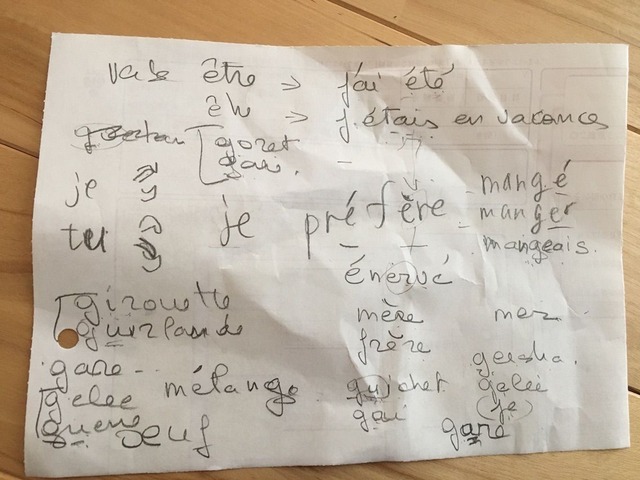 être => j'ai été
=> j'étais en vacances
goret
gai.
je
mangé
tu je préfère manger
mangeais.
énervé
girouette mère mer
guirlande frère
geisha.
gare - mélange guichet gelée
gelee gai (je)
oeuf gare